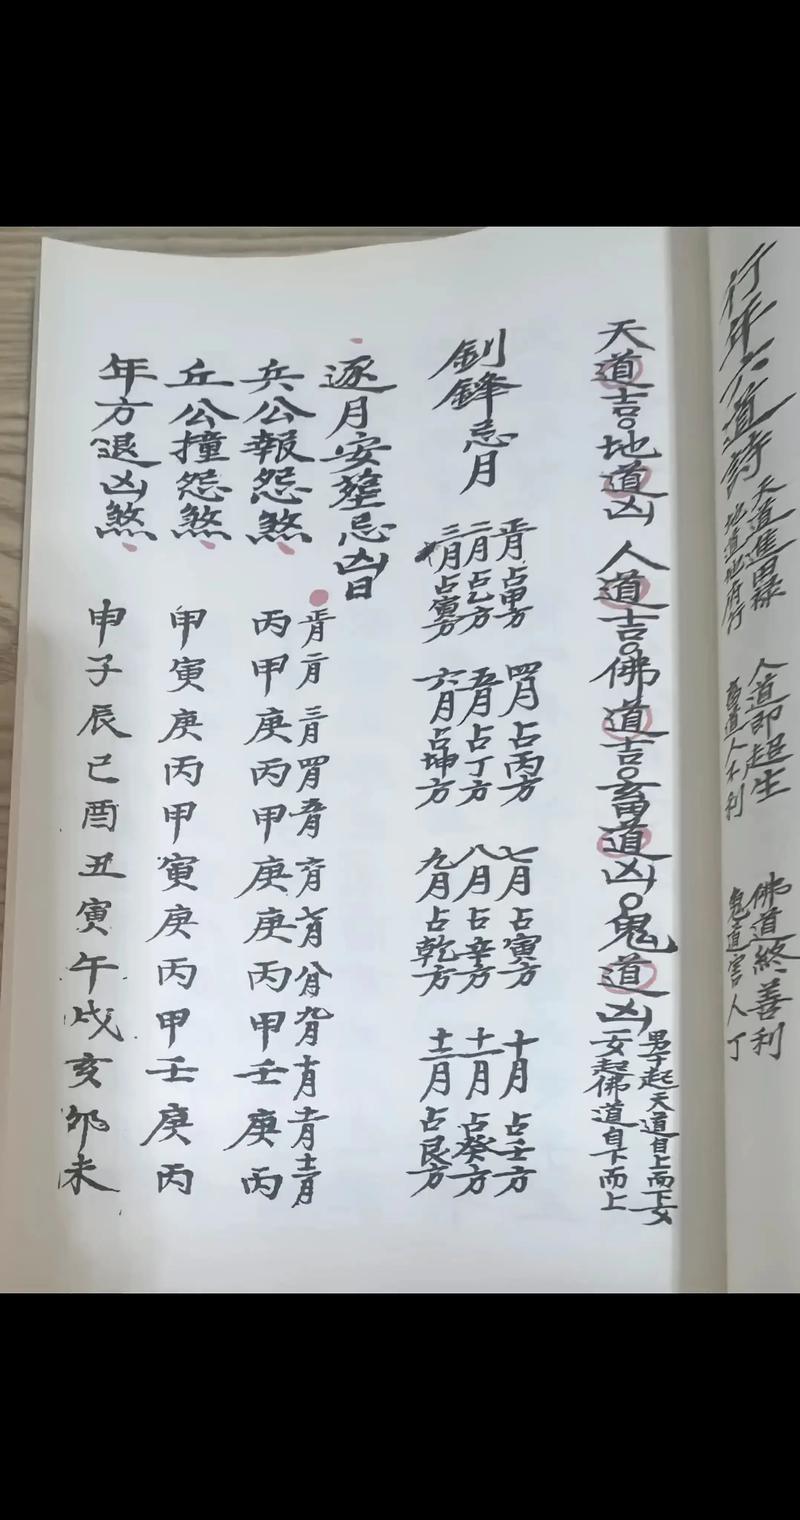 行年六道詩
天道進田祿
地道地府行
人道即超生
畜道人不利
佛道終善利
鬼道害人丁
天道吉。地道凶 人道吉。佛道吉。畜道凶。鬼道凶
男子起天道自上而下女
女起佛道自下而上
劍鋒忌月
正月占甲方
二月占乙方
三月占寅方
四月占丙方
五月占丁方
六月占坤方
七月占寅方
八月占辛方
九月占乾方
十月占壬方
十一月占癸方
十二月占艮方
逐月安葬忌凶日
正月 二月 三月 四月 五月 六月 七月 八月 九月 十月 十一月 十二月
兵公報怨煞 丙甲庚丙甲庚庚丙甲壬庚丙
丘公撞怨煞 甲寅庚丙甲寅庚丙甲壬庚丙
年方退凶煞 申子辰巳酉丑寅午戌亥卯未